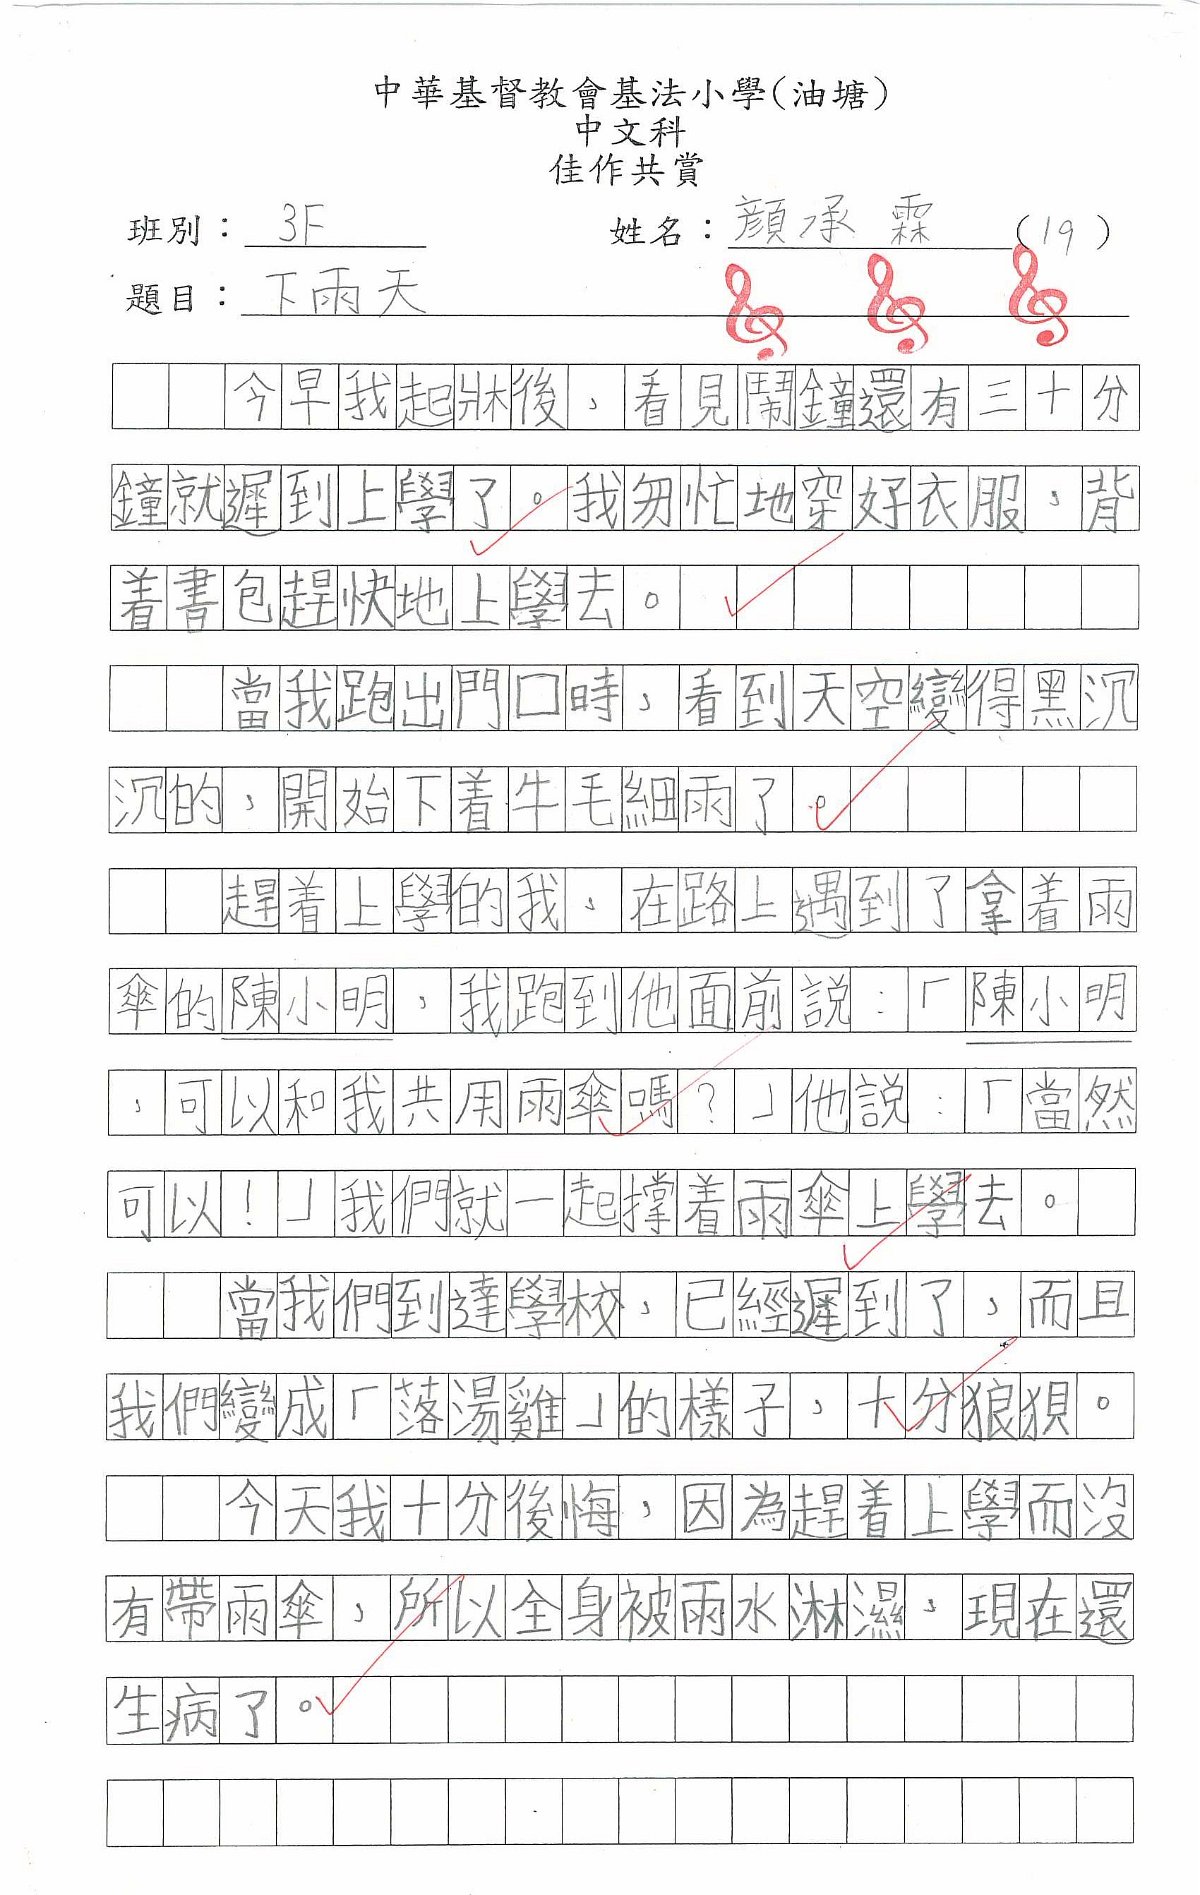 中華基督教會基法小學(油塘)
中文科
佳作共賞
班別：3F 姓名：顏承霖(19)
題目：下雨天
今早我起牀後，看見鬧鐘還有三十分
鐘就遲到上學了。我匆忙地穿好衣服，背
着書包趕快地上學去。
當我跑出門口時，看到天空變得黑沉
沉的，開始下着牛毛細雨了。
趕着上學的我，在路上遇到了拿着雨
傘的陳小明，我跑到他面前說：「陳小明
，可以和我共用雨傘嗎？」他說：「當然
可以！」我們就一起撑着雨傘上學去。
當我們到達學校，已經遲到了，而且
我們變成「落湯雞」的樣子，十分狼狽。
今天我十分後悔，因為趕着上學而沒
有帶雨傘，所以全身被雨水淋濕，現在還
生病了。